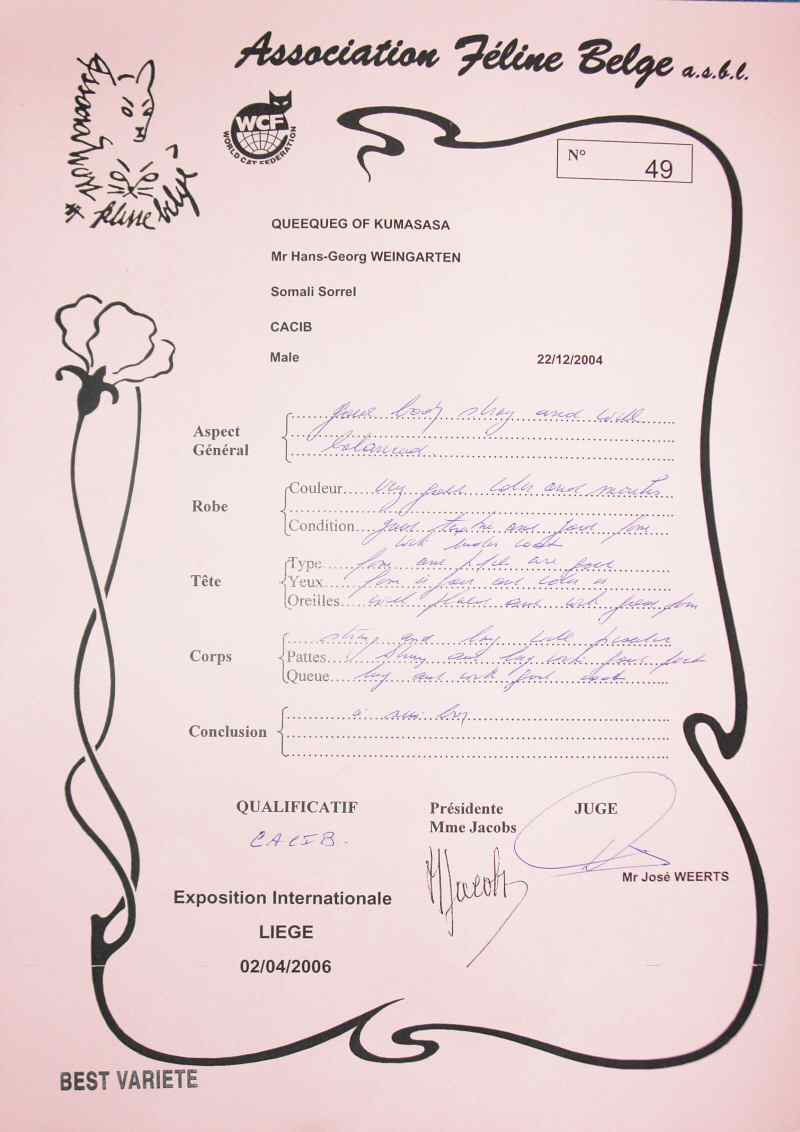 Association Féline Belge a.s.b.l.
Association
féline belge
WCF
WORLD CAT FEDERATION
N° 49
QUEEQUEG OF KUMASASA
Mr Hans-Georg WEINGARTEN
Somali Sorrel
CACIB
Male 22/12/2004
good body strong and well
Aspect
Général
balanced
Robe
Couleur very good color and
Condition good and good
under coat
Tête
Type form and are good
Yeux form is good and color is
Oreilles well placed and good form
Corps
strong and long well
Pattes strong and long good
Queue long and good
Conclusion
a nice boy
QUALIFICATIF
CACIB.
Présidente
Mme Jacobs
JUGE
Jacobs
Mr José WEERTS
Exposition Internationale
LIEGE
02/04/2006
BEST VARIETE